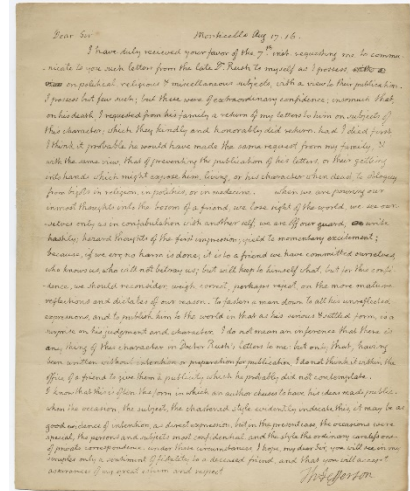 Dear Sir Monticello Aug 17. 16.
I have duly recieved your favor of the 7th inst. requesting me to commu-
-nicate to you such letters from the late Dr. Rush to myself as I possess,
on political religious & miscellaneous subjects, with a view to their publication.
I possess but few such; but these were of extraordinary confidence; insomuch that,
on his death, I requested from his family a return of my letters to him on subjects of
this character, which they kindly and honorably did return. had I died first
I think it probable he would have made the same request from my family, &
with the same view, that of preventing the publication of his letters, or their getting
into hands which might expose him, living, or his character when dead, to
from bigots in religion, in politics, or in medecine. when we are pouring our
inmost thoughts into the bosom of a friend, we lose sight of the world, we see our-
selves only in confabulation with another self; we are off our guard; write
hastily; hazard thoughts of the first impression; yield to momentary excitement;
because, if we err, no harm is done; it is to a friend we have committed ourselves,
who knows us, who will not betray us; but will keep to himself what, but for this confi-
dence, we should reconsider, weigh, correct, perhaps reject, on the more mature
reflections and dictates of our reason. to fasten a man down to all his unreflected
expressions, and to publish him to the world in that as his serious & settled form, is a
surprise on his judgment and character. I do not mean an inference that there is
any thing of this character in Doctor Rush's letters to me: but only that, having
been written without intention or preparation for publication I do not think it within the
office of a friend to give them a publicity which he probably did not contemplate.
I know that this is often the form in which an author chuses to have his ideas made public.
when the occasion, the subject, the chastened style evidently indicate this, it may be as
good evidence of intention, as direct expression. but in the present case, the occasions were
special, the persons and subjects most confidential, and the style the ordinary carelessness
of private correspondence. under these circumstances I hope, my dear Sir, you will see in my
scruples only a sentiment of fidelity to a deceased friend, and that you will accept
assurances of my great esteem and respect
Th: Jefferson